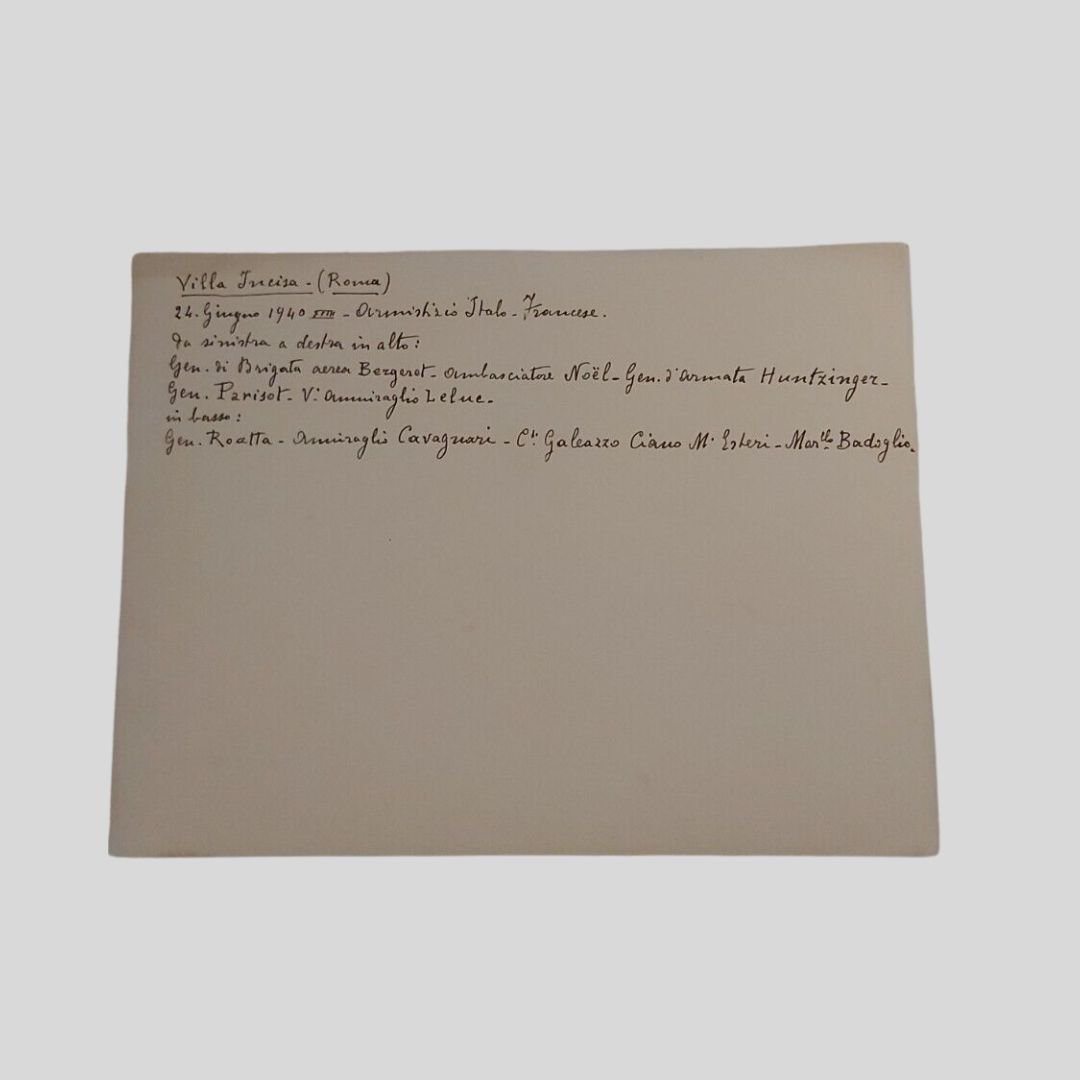 Villa Incisa - (Roma)
24. Giugno 1940 XVIII - Armistizio Italo - Francese.
da sinistra a destra in alto:
Gen. di Brigata aerea Bergeret - Ambasciatore Noël - Gen. d'armata Huntzinger -
Gen. Parisot - V. Ammiraglio Leluc -
in basso:
Gen. Roatta - Ammiraglio Cavagnari - C. Galeazzo Ciano M. Esteri - Mar.llo Badoglio.